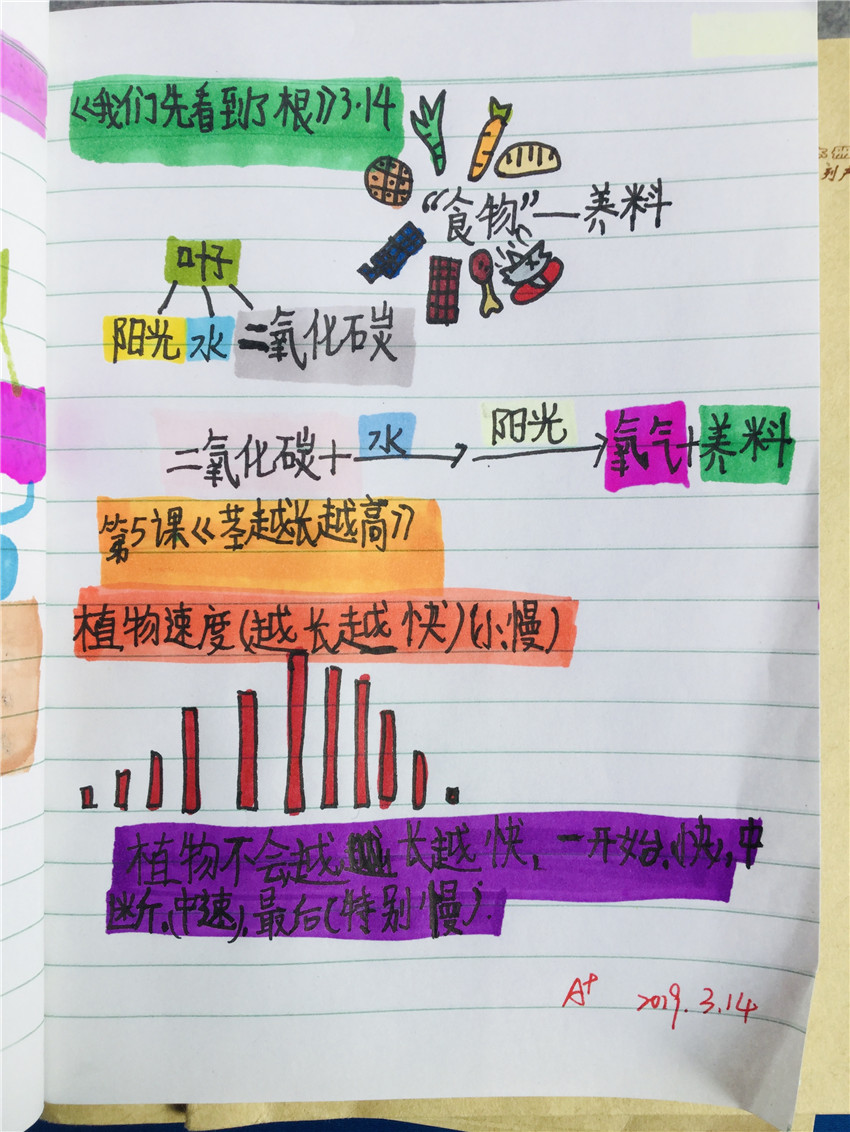 《我们先看到了根》3.14
“食物”—养料
叶子
阳光 水 二氧化碳
二氧化碳+ 水 阳光 氧气+养料
第5课《茎越长越高》
植物速度(越长越快)(小,慢)
植物不会越长越快,一开始(快),中
断(中速),最后(特别慢).
A+ 2019.3.14